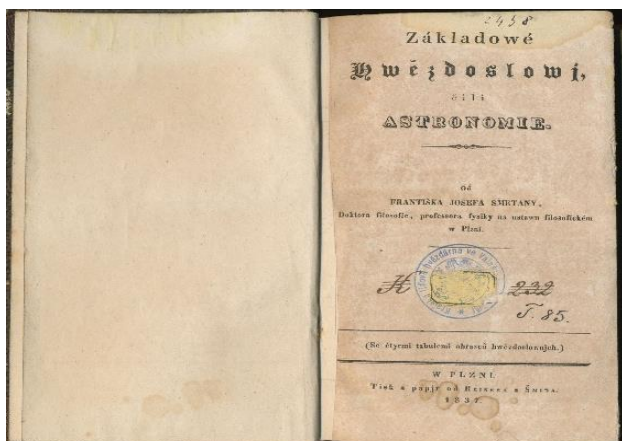 2458
Základowé
Hwězdoslowj,
čili
ASTRONOMIE.
Od
FRANTIŠKA JOSEFA SMETANY,
Doktora filosofie, professora fysiky na ustawu filosofickém
w Plzni.
H 232
T. 85.
(Se čtyrmi tabulemi obrazů hwězdoslownjch.)
W PLZNI.
Tisk a papjr od Reinera a Šmida.
1837.